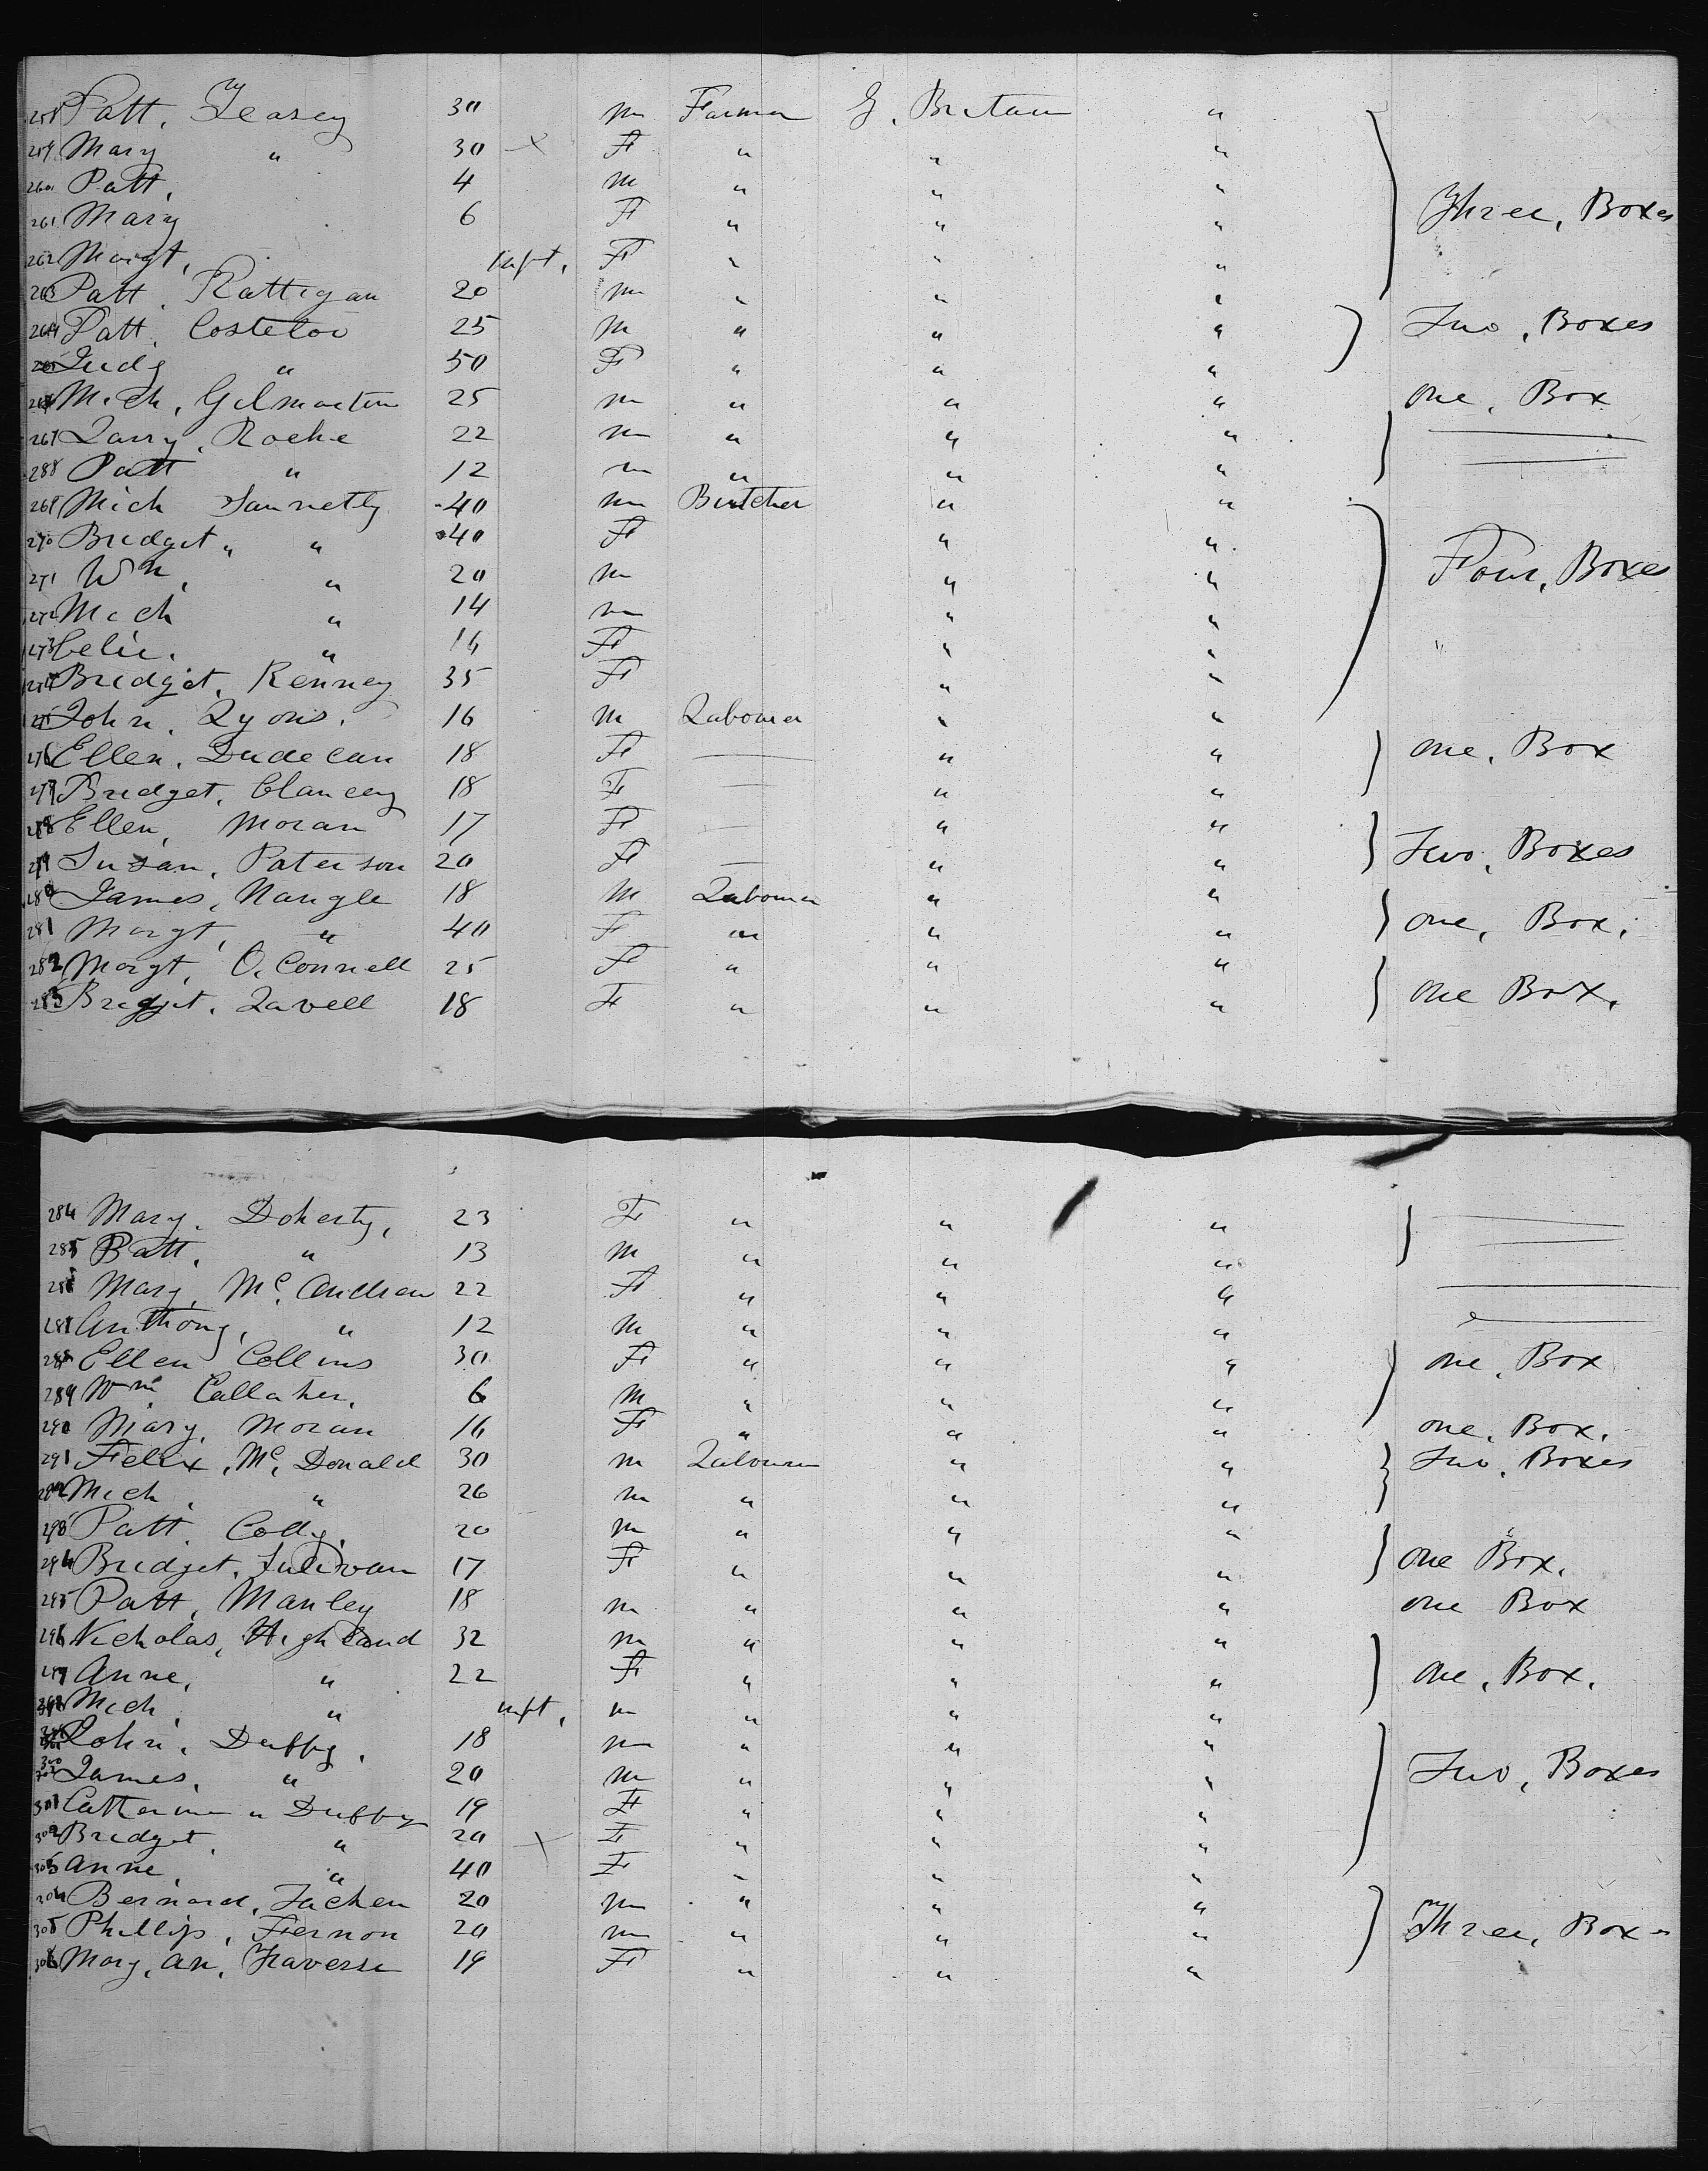 258 Patt, Feasey 30 m Farmer G. Britain "
259 Mary " 30 x F " " "
260 Patt, 4 m " " "
261 Mary 6 F " " "
262 Margt, Inft, F " " "
263 Patt, Rattigan 20 m " " " Three, Boxes
264 Patt, Costeloo 25 m " " " Two, Boxes
265 Judy " 50 F " " "
266 Mich, Gilmartin 25 m " " " one, Box
267 Larry, Roche 22 m " " "
288 Patt " 12 m " " "
269 Mich Sannetly 40 m Butcher " "
270 Bridget " " 40 F " "
271 Wm, " 20 m " " Four, Boxes
272 Mich " 14 m " "
273 Celie. " 16 F " "
274 Bridget, Kenney 35 F " "
275 John, Lyons. 16 m Labourer " "
276 Ellen, Dudecan 18 F — " " one, Box
277 Bridget, Clancey 18 F — " "
278 Ellen, Moran 17 F — " " Two, Boxes
279 Susan, Paterson 20 F — " "
280 James, Nangle 18 m Labourer " " one, Box.
281 Margt, " 40 F " " "
282 Margt, O. Connell 25 F " " " one Box.
283 Bridget, Lavell 18 F " " "
284 Mary. Doherty, 23 F " " "
285 Patt, " 13 m " " "
286 Mary, Mc. Andrew 22 F " " "
287 Anthony, " 12 m " " "
288 Ellen Collins 30 F " " " one, Box
289 Wm. Callaher, 6 m " " "
290 Mary, Moran 16 F " " " one, Box.
291 Felix, Mc. Donald 30 m Labourer " " Two, Boxes
292 Mich, " 26 m " " "
293 Patt. Colly, 20 m " " " one Box.
294 Bridget, Sullivan 17 F " " "
295 Patt, Manley 18 m " " " one Box
296 Nicholas, Highland 32 m " " " one, Box.
297 Anne, " 22 F " " "
298 Mich, " inft, m " " "
John, Duffy, 18 m " " " Two, Boxes
300 James, " 20 m " " "
301 Catherine " Duffy 19 F " " "
302 Bridget, " 20 x F " " "
303 Anne, " 40 F " " "
304 Bernard, 20 m " " " Three, Boxes
305 Phillip, Fiernon 20 m " " "
306 Mary, An, Traverse 19 F " " "